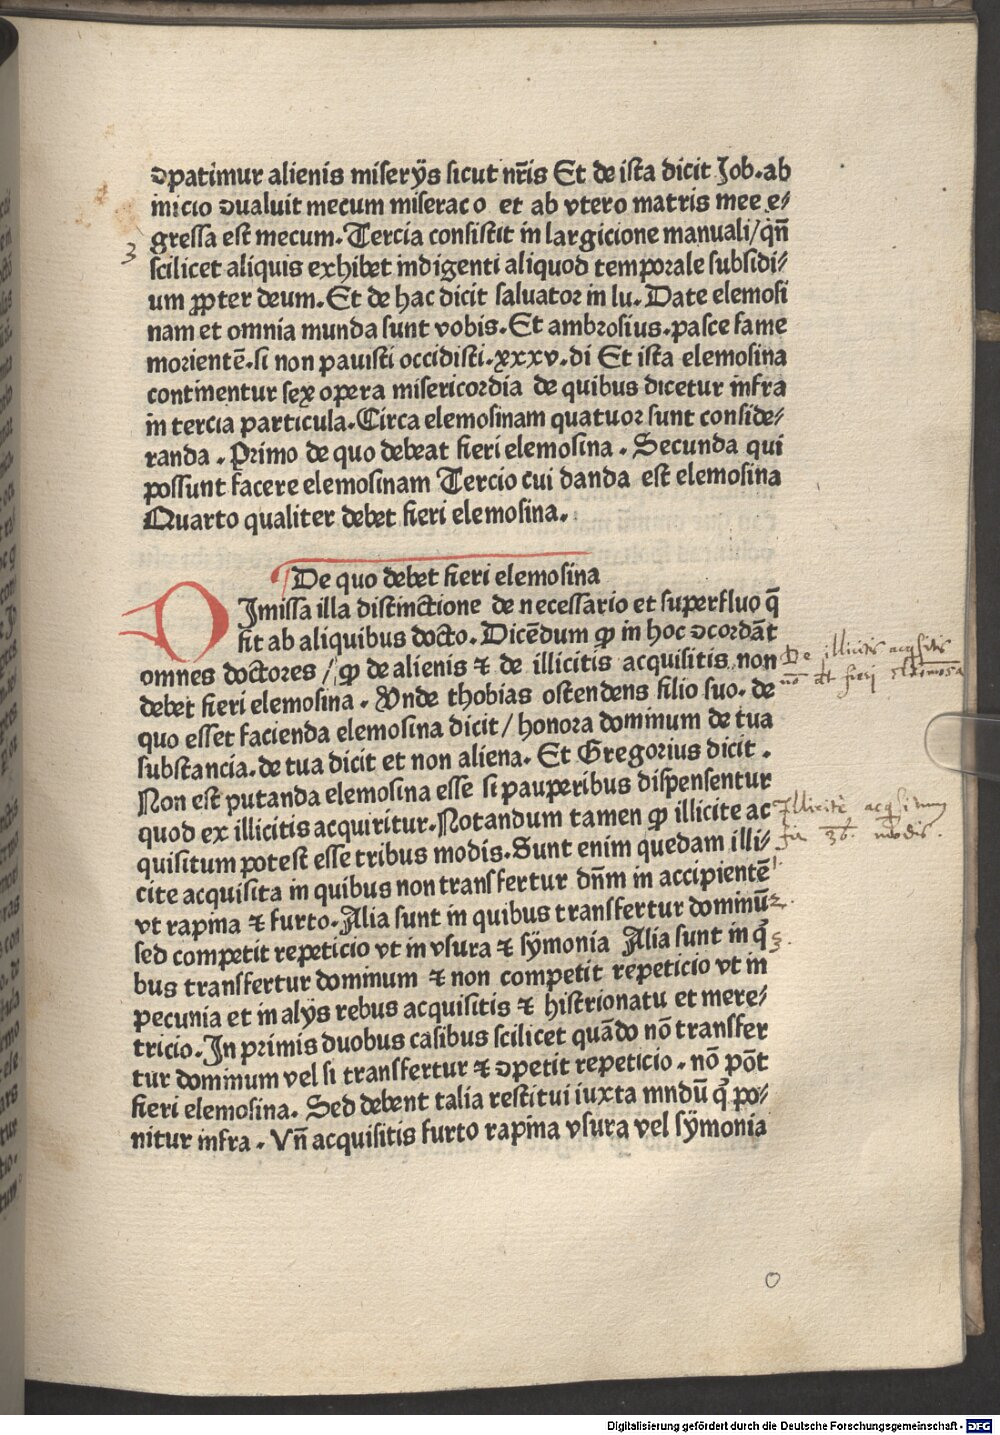 ↄpatimur alienis miserijs sicut nr̄is Et de ista dicit Job.ab
inicio ↄualuit mecum miseraco et ab vtero matris mee e⸗
gressa est mecum.Tercia consistit in largicione manuali/qn̄
3
scilicet aliquis exhibet indigenti aliquod temporale subsidi⸗
um ꝓpter deum.Et de hac dicit saluator in lu.Date elemosi
nam et omnia munda sunt vobis.Et ambrosius.pasce fame
morientē.si non pauisti occidisti.xxxv.di Et ista elemosina
continentur sex opera misericordia de quibus dicetur infra
in tercia particula.Circa elemosinam quatuor sunt conside⸗
randa.Primo de quo debeat fieri elemosina.Secunda qui
possunt facere elemosinam Tercio cui danda est elemosina
Quarto qualiter debet fieri elemosina.
De quo debet fieri elemosina
DImissa illa distinctione de necessario et superfluo q̄
fit ab aliquibus docto.Dicēdum ꝙ in hoc ↄcordāt
omnes doctores/ꝙ de alienis ⁊ de illicitis acquisitis non
De illicitis acqsitis
nō dt fieri elemosĩa
debet fieri elemosina.Vnde thobias ostendens filio suo.de
quo esset facienda elemosina dicit/honora dominum de tua
substancia.de tua dicit et non aliena.Et Gregorius dicit.
Non est putanda elemosina esse si pauperibus dispensentur
quod ex illicitis acquiritur.Notandum tamen ꝙ illicite ac
Illicitē acqsitum
fit 3b. modis.
quisitum potest esse tribus modis.Sunt enim quedam illi⸗
cite acquisita in quibus non transfertur dn̄m in accipientē
1.
vt rapina ⁊ furto.Alia sunt in quibus transfertur dominū
2.
sed competit repeticio vt in vsura ⁊ sÿmonia Alia sunt in q̄
3.
bus transfertur dominum ⁊ non competit repeticio vt in
pecunia et in alijs rebus acquisitis ⁊ histrionatu et mere⸗
tricio.In primis duobus casibus scilicet quādo nō transfer
tur dominum vel si transfertur ⁊ ↄpetit repeticio.nō pōt
fieri elemosina.Sed debent talia restitui iuxta mndū q̄ po⸗
nitur infra.Vn̄ acquisitis furto rapina vsura vel sÿmonia
O
Digitalisierung gefördert durch die Deutsche Forschungsgemeinschaft - DFG